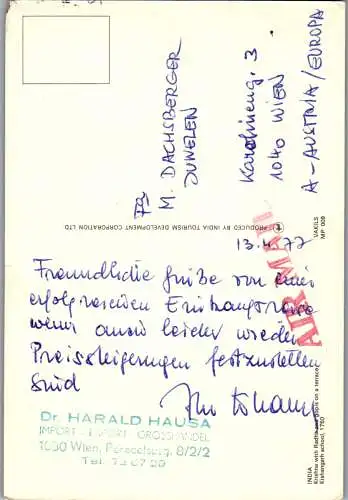 Fa
M. DACHSBERGER
JUWELEN
Karolineng. 3
1040 WIEN
A-AUSTRIA/EUROPA
PRODUCED BY INDIA TOURISM DEVELOPMENT CORPORATION LTD
VAKILS
MP 009
AIR MAIL
13.4.77
Freundliche Grüße von einer
erfolgreichen Einkaufsreise
wenn auch leider wieder
Preissteigerungen festzustellen
sind
Dr. HARALD HAUSA
IMPORT - EXPORT - GROSSHANDEL
1050 Wien, 8/2/2
Tel.
INDIA
Krishna with Radha and gopis on a terrace
Kishangarh school, 1760